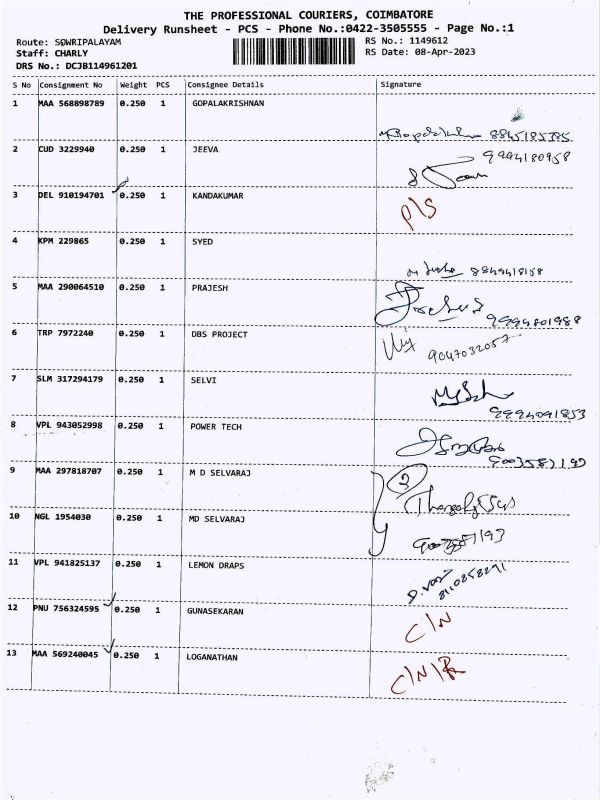 THE PROFESSIONAL COURIERS, COIMBATORE
Delivery Runsheet - PCS - Phone No.:0422-3505555 - Page No.:1
Route: SOWRIPALAYAM RS No.: 1149612
Staff: CHARLY RS Date: 08-Apr-2023
DRS No.: DCJB114961201
S No Consignment No Weight PCS Consignee Details Signature
1 MAA 568898789 0.250 1 GOPALAKRISHNAN
2 CUD 3229940 0.250 1 JEEVA 9994180958
3 DEL 910194701 0.250 1 KANDAKUMAR P/S
4 KPM 229865 0.250 1 SYED
5 MAA 290064510 0.250 1 PRAJESH 9994801988
6 TRP 7972240 0.250 1 DBS PROJECT 9047032057
7 SLM 317294179 0.250 1 SELVI 9994091853
8 VPL 943052998 0.250 1 POWER TECH
9 MAA 297818707 0.250 1 M D SELVARAJ
10 NGL 1954030 0.250 1 MD SELVARAJ
11 VPL 941825137 0.250 1 LEMON DRAPS
12 PNU 756324595 0.250 1 GUNASEKARAN C/N
13 MAA 569240045 0.250 1 LOGANATHAN